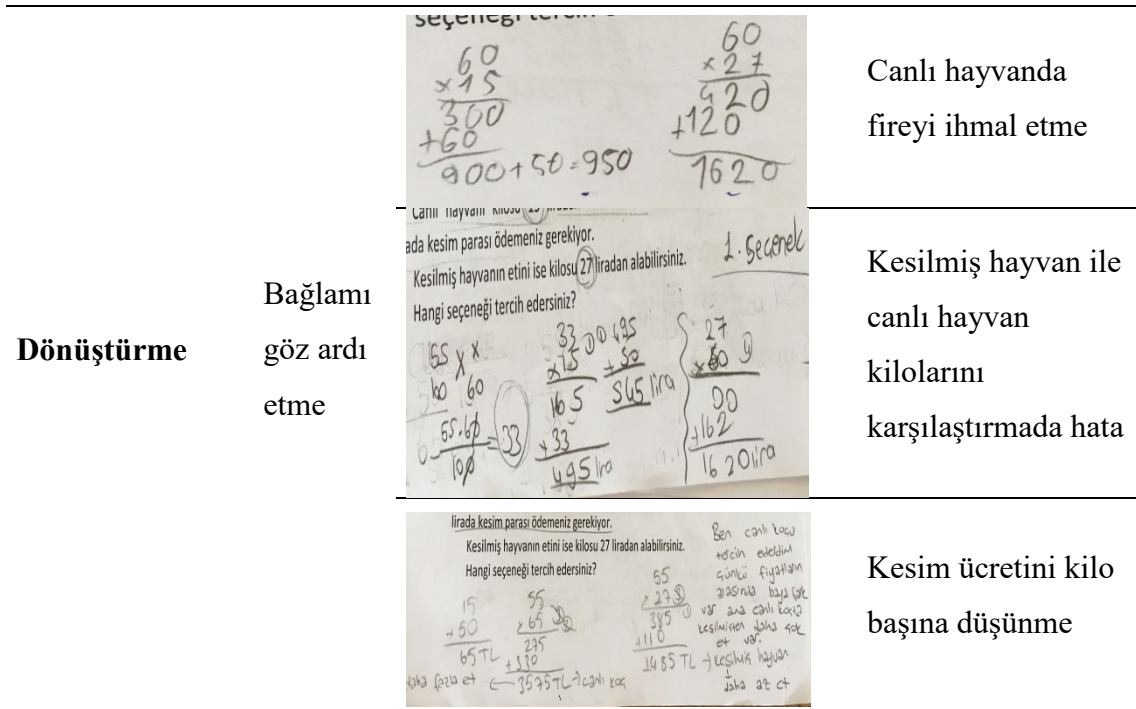 seçeneği tercih
60
×15
300
+60
900+50=950
60
×27
420
+120
1620
Canlı hayvanda
fireyi ihmal etme
Dönüştürme
Bağlamı
göz ardı
etme
Canlı hayvanın kilosu 15
ada kesim parası ödemeniz gerekiyor.
Kesilmiş hayvanın etini ise kilosu 27 liradan alabilirsiniz.
Hangi seçeneği tercih edersiniz?
1. seçenek
55 x
100 60
55.60
100
=33
33
×15
165
+33
495 lira
495
+50
545 lira
27
×60
00
+162
1620 lira
Kesilmiş hayvan ile
canlı hayvan
kilolarını
karşılaştırmada hata
lirada kesim parası ödemeniz gerekiyor.
Kesilmiş hayvanın etini ise kilosu 27 liradan alabilirsiniz.
Hangi seçeneği tercih edersiniz?
15
+50
65 TL
55
×65
275
+330
daha fazla et ← 3575 TL → canlı koç
55
×27
385
+110
1485 TL → kesilmiş hayvan
daha az et
Ben canlı koçu
tercih ederdim
çünkü fiyatların
arasında baya çok
var ama canlı koçta
kesilmişten daha çok
et var.
Kesim ücretini kilo
başına düşünme